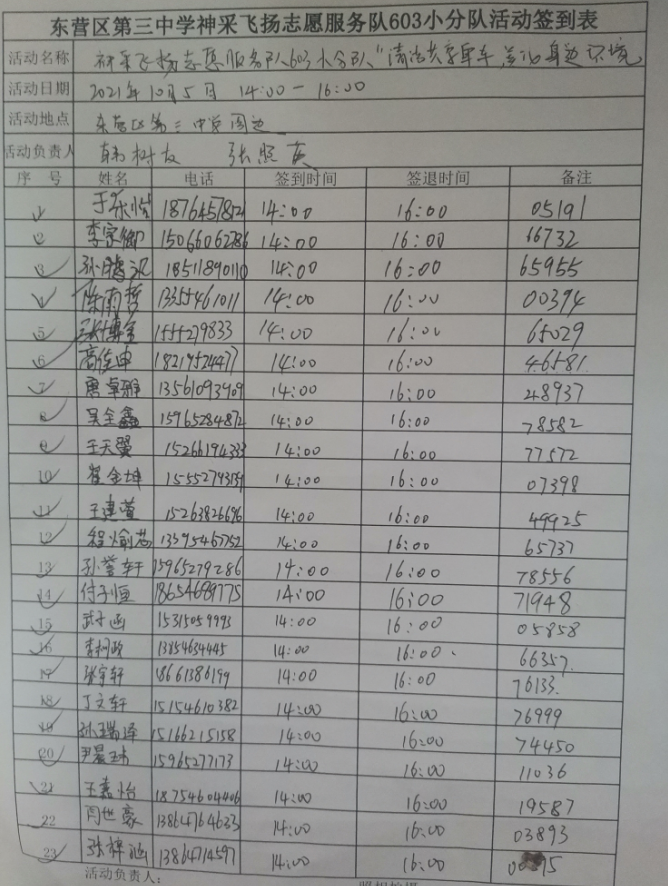 东营区第三中学神采飞扬志愿服务队603小分队活动签到表
活动名称 神采飞扬志愿服务队603小分队"清洁共享单车,美化身边环境
活动日期 2021年10月5日 14:00-16:00
活动地点 东营区第三中学周边
活动负责人 韩树友 张照英
序号 姓名 电话 签到时间 签退时间 备注
1 于永恺 18764578721 14:00 16:00 05191
2 李宗御 15066062786 14:00 16:00 66732
3 孙腾汉 18511890110 14:00 16:00 65955
4 陈雨哲 13355461011 14:00 16:00 00394
5 1555279833 14:00 16:00 65029
6 高佳申 18219524477 14:00 16:00 46581
7 唐卓雅 13561093909 14:00 16:00 28937
8 吴全鑫 15965284872 14:00 16:00 78582
9 王天翼 15266194333 14:00 16:00 77572
10 崔金坤 14:00 16:00 07398
11 王建萱 15263826696 14:00 16:00 49925
12 程愉芯 13395467752 14:00 16:00 65737
13 孙誉轩 15965279286 14:00 16:00 78556
14 付子恒 18654689775 14:00 16:00 71948
15 武子函 15315059993 14:00 16:00 05858
16 李柯政 13854634445 14:00 16:00 66357
17 张宇轩 18661386199 14:00 16:00 76133
18 丁文轩 15154610382 14:00 16:00 76999
19 孙瑞泽 15166215158 14:00 16:00 74450
20 尹晨玮 15965277173 14:00 16:00 11036
21 王嘉怡 18754604406 14:00 16:00 19587
22 闫世豪 13864764633 14:00 16:00 03893
23 张梓涵 13864714597 14:00 16:00
活动负责人: